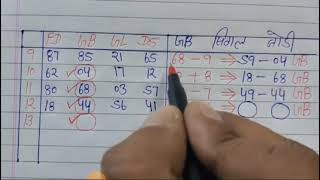 FD GB GL DS GB सिंगल जोड़ी
9 87 85 21 65 68 - 9 ⇒ 59 - 04 GB
10 62 ✓04 17 12 + 8 ⇒ 18 - 68 GB
11 80 ✓68 03 57 - 7 ⇒ 49 - 44 GB
12 18 ✓44 56 41 ⇒ GB
13 ✓